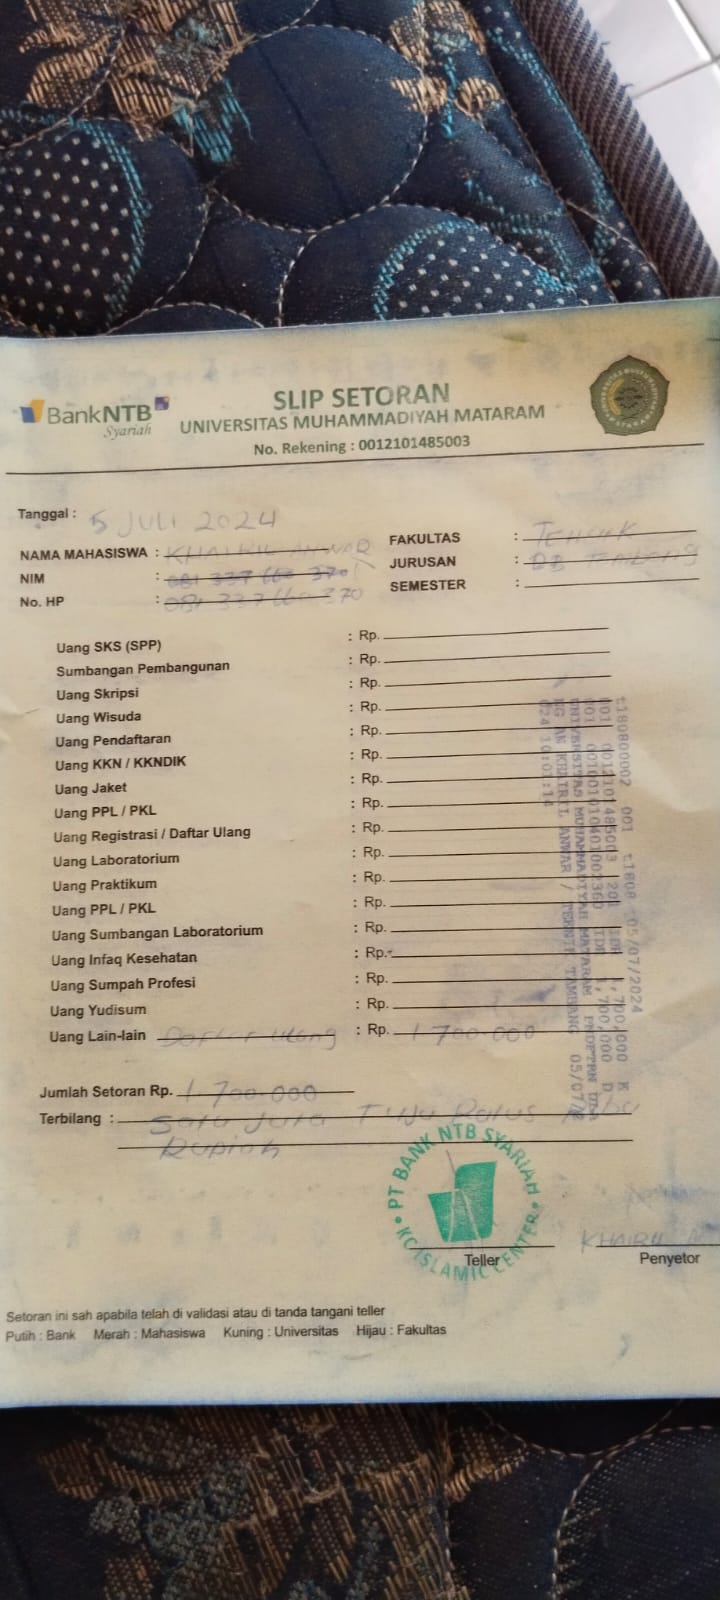 BankNTB
Syariah
SLIP SETORAN
UNIVERSITAS MUHAMMADIYAH MATARAM
No. Rekening : 0012101485003
Tanggal : 5 JULI 2024
NAMA MAHASISWA : KHAIRIL ANWAR
NIM : 081 337 660 370
No. HP : 081 337 660 370
FAKULTAS : TEHNIK
JURUSAN : Tambang
SEMESTER :
Uang SKS (SPP) : Rp.
Sumbangan Pembangunan : Rp.
Uang Skripsi : Rp.
Uang Wisuda : Rp.
Uang Pendaftaran : Rp.
Uang KKN / KKNDIK : Rp.
Uang Jaket : Rp.
Uang PPL / PKL : Rp.
Uang Registrasi / Daftar Ulang : Rp.
Uang Laboratorium : Rp.
Uang Praktikum : Rp.
Uang PPL / PKL : Rp.
Uang Sumbangan Laboratorium : Rp.
Uang Infaq Kesehatan : Rp.
Uang Sumpah Profesi : Rp.
Uang Yudisum : Rp.
Uang Lain-lain Daftar Ulang : Rp. 1.700.000
Jumlah Setoran Rp. 1.700.000
Terbilang : Satu Juta Tuju Ratus Ribu
Rupiah
t180800002 001 t1808 05/07/2024
001 0012101485003 201 IDR 1,700,000 K
UNIVERSITAS MUHAMMADIYAH MATARAM
KHAIRIL ANWAR / TEKNIK TAMBANG 05/07/2
024 10:01:14
PT BANK NTB SYARIAH
KC ISLAMIC CENTER
Teller
KHAIRIL
Penyetor
Setoran ini sah apabila telah di validasi atau di tanda tangani teller
Putih : Bank Merah : Mahasiswa Kuning : Universitas Hijau : Fakultas